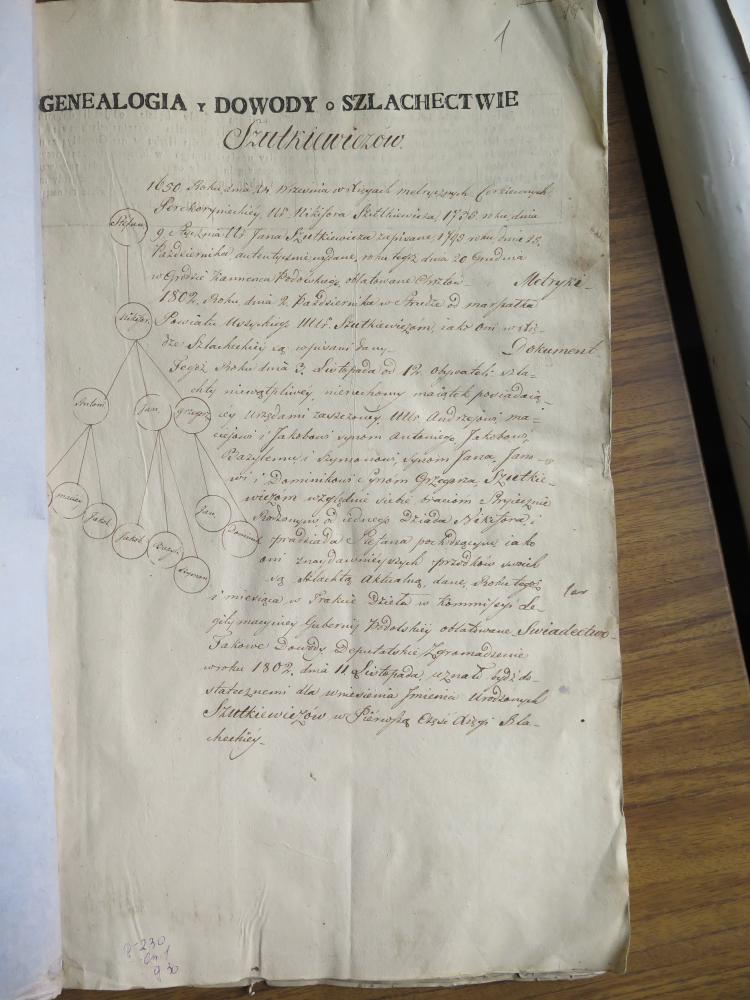 1
GENEALOGIA Y DOWODY O SZLACHECTWIE
Szutkiewiczów.
1650 Roku dnia 24 Września w Xięgach metrycznych Cerkiewnych
Ur. Nikifora Szutkiewicza, 1738 roku, dnia
9 Ur. Jana Szutkiewicza zapisane, 1798 roku, dnia 25
Października autentycznie wydane, roku tegoż dnia 20 Grudnia
w Grodzie Kamienca Podolskiego oblatowane Chrztów Metryki.
1802. Roku dnia 2. Października od marszałka
Powiatu Uszyckiego Ur. Szutkiewiczom, iako oni w
dze Szlacheckiey są wpisani dany Dokument
Tegoż Roku dnia 3. Listopada od 12. obywateli szla-
chty niewątpliwey, nieruchomy maiątek posiadaią-
cey Urzędami zaszczoney, Ur Andrzejowi, ma-
ciejowi i Jakobowi synom Antoniego, Jakobowi,
Bazylemu i Szymonowi, synom Jana, Jano-
wi i Dominikowi synóm Grzegorza, Szutkie-
wiczom względnie siebie braciom Stryiecznie
Rodzonym, od iednego Dziada Nikifora i
pradziada Stefana pochodzącym iako
oni z naydawnieyszych przodków swoich
są Szlachtą Aktualną, dane, Roku tegoż
i miesiąca w Trakcie Dzieła w Kommissyi Le-
gitymacyiney Gubernij Podolskiey oblatowane Swiadectwo.
Takowe Dowody Deputatskie Zgromadzenie
w roku 1802. dnia 11. Listopada, uznało bydź do-
statecznemi dla wniesienia Imienia Urodzonych
Szutkiewiczów w Pierwszą Część Xięgi Szla-
checkiey.
Stefan
Nikifor
Antoni
Jan
Grzegorz
maciey
Jakob
Jakob
Bazyli
Szymon
Jan
Dominik
230